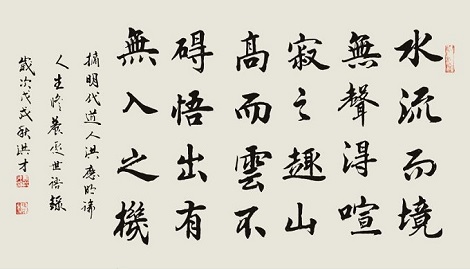 水流而境
無聲得喧
寂之趣山
高而雲不
碍悟出有
無入之機
摘明代道人洪應明
人生修養處世錄
歲次戊戌秋洪才